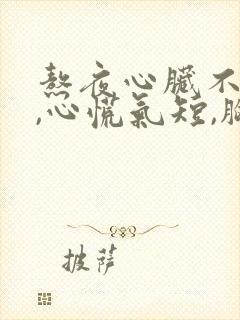 熬夜心臟不
,心慌氣短,胸
披薩